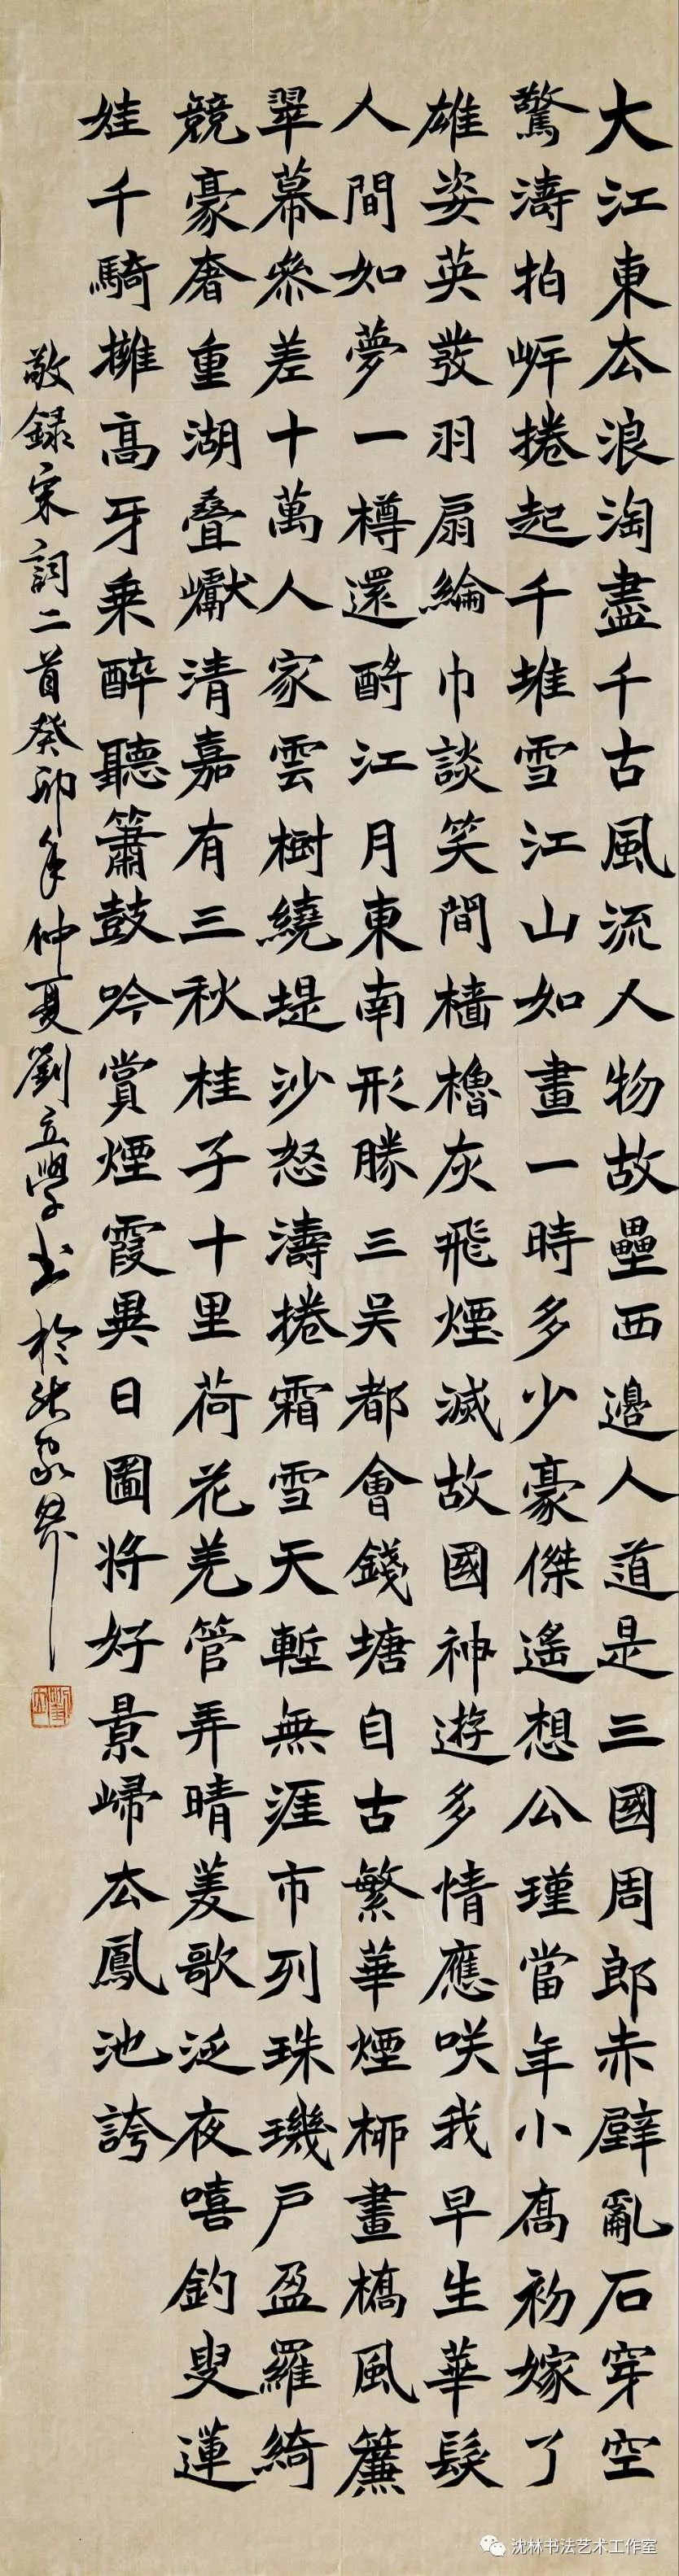 大江東去浪淘盡千古風流人物故壘西邊人道是三國周郎赤壁亂石穿空
驚濤拍岸捲起千堆雪江山如畫一時多少豪傑遙想公瑾當年小喬初嫁了
雄姿英發羽扇綸巾談笑間檣櫓灰飛煙滅故國神遊多情應咲我早生華髮
人間如夢一樽還酹江月東南形勝三吳都會錢塘自古繁華煙柳畫橋風簾
翠幕參差十萬人家雲樹繞堤沙怒濤捲霜雪天塹無涯市列珠璣戶盈羅綺
競豪奢重湖疊巘清嘉有三秋桂子十里荷花羌管弄晴菱歌泛夜嘻釣叟蓮
娃千騎擁高牙乘醉聽簫鼓吟賞煙霞異日圖將好景歸去鳳池誇
敬録宋詞二首癸卯年仲夏劉立學書於張家界
沈林书法艺术工作室